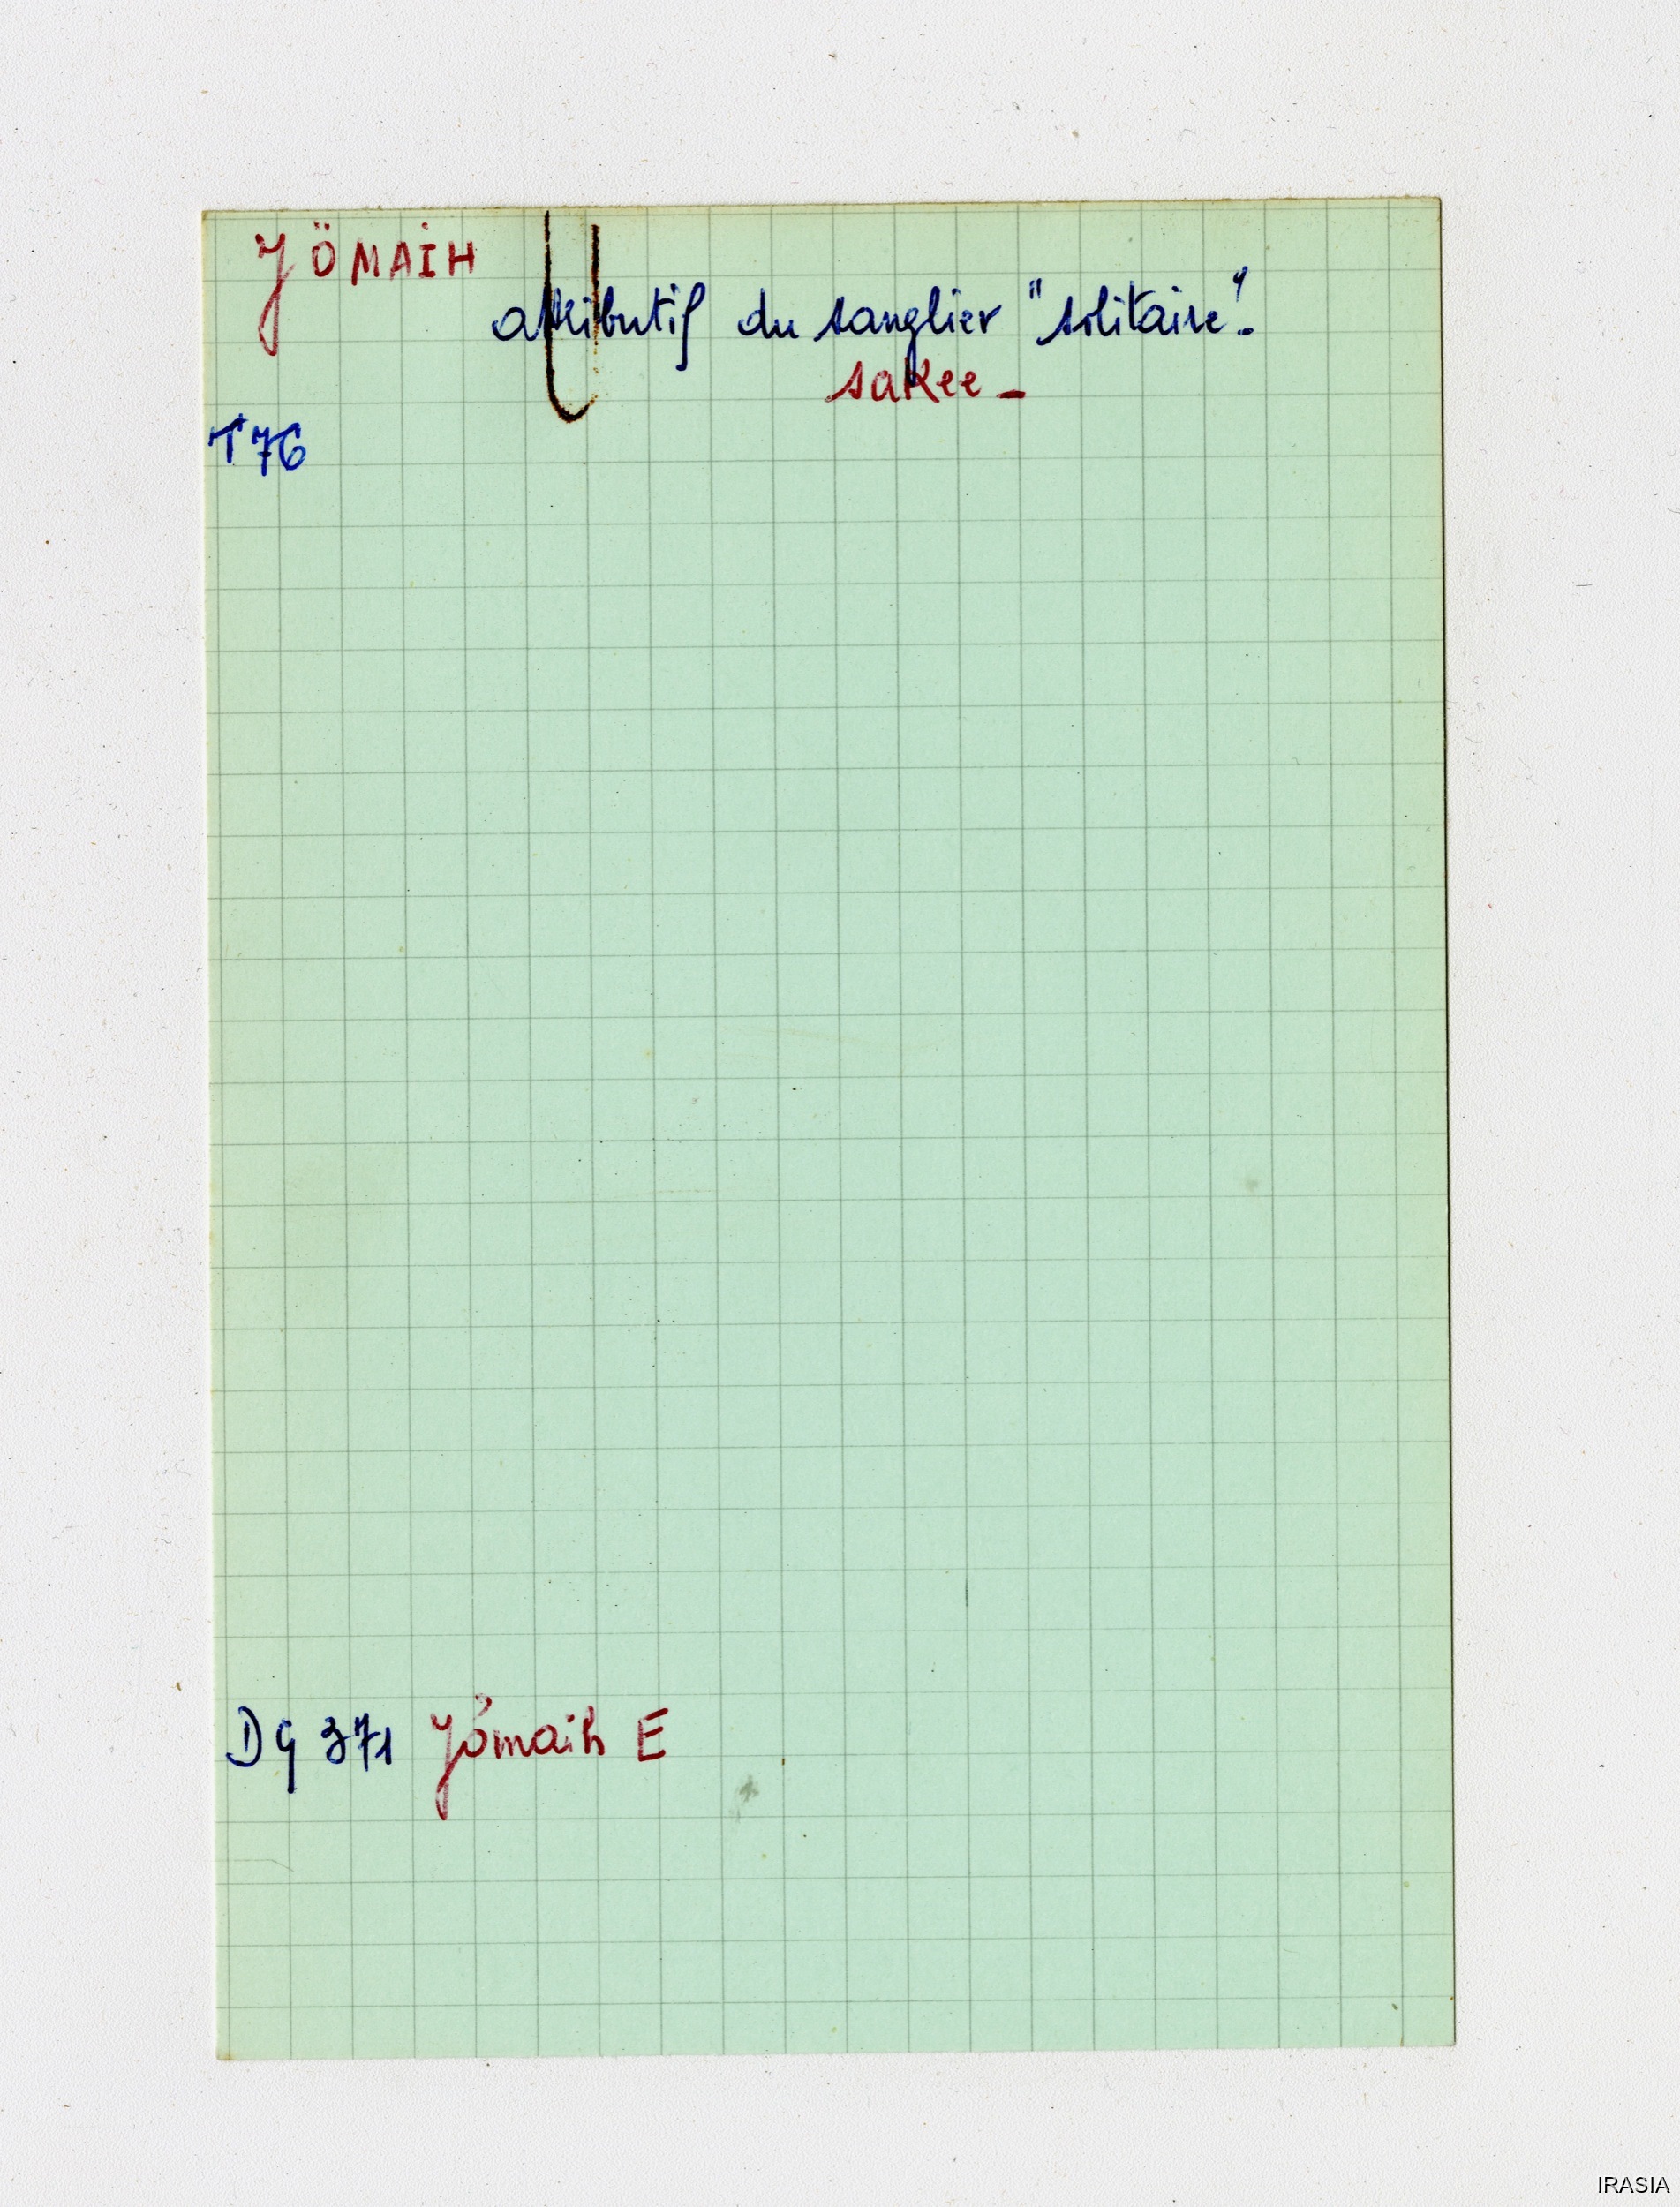 JÖMAIH
attributif du sanglier "solitaire".
sakee _
T76
DG 371 Jömaih E
IRASIA